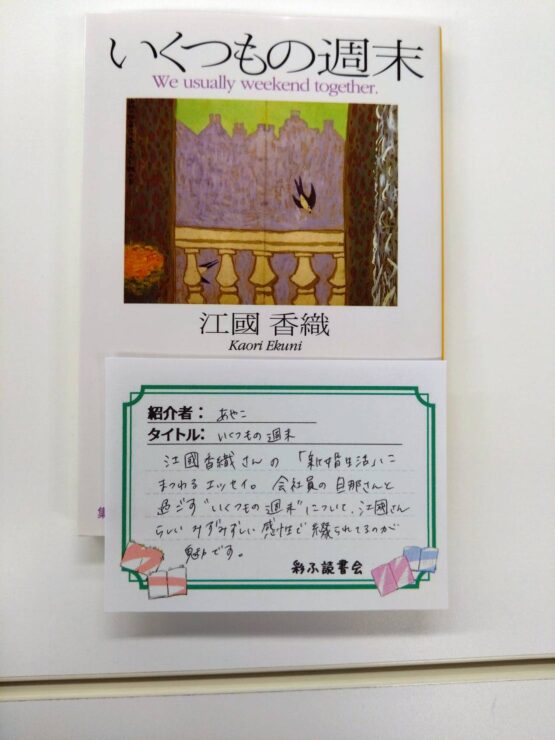 いくつもの週末
We usually weekend together.
江國 香織
Kaori Ekuni
集
紹介者: あやこ
タイトル: いくつもの週末
江國香織さんの「新婚生活」に
まつわるエッセイ。会社員の旦那さんと
過ごす"いくつもの週末"について、江國さん
らしいみずみずしい感性で綴られてるのが
魅力です。
彩ふ読書会